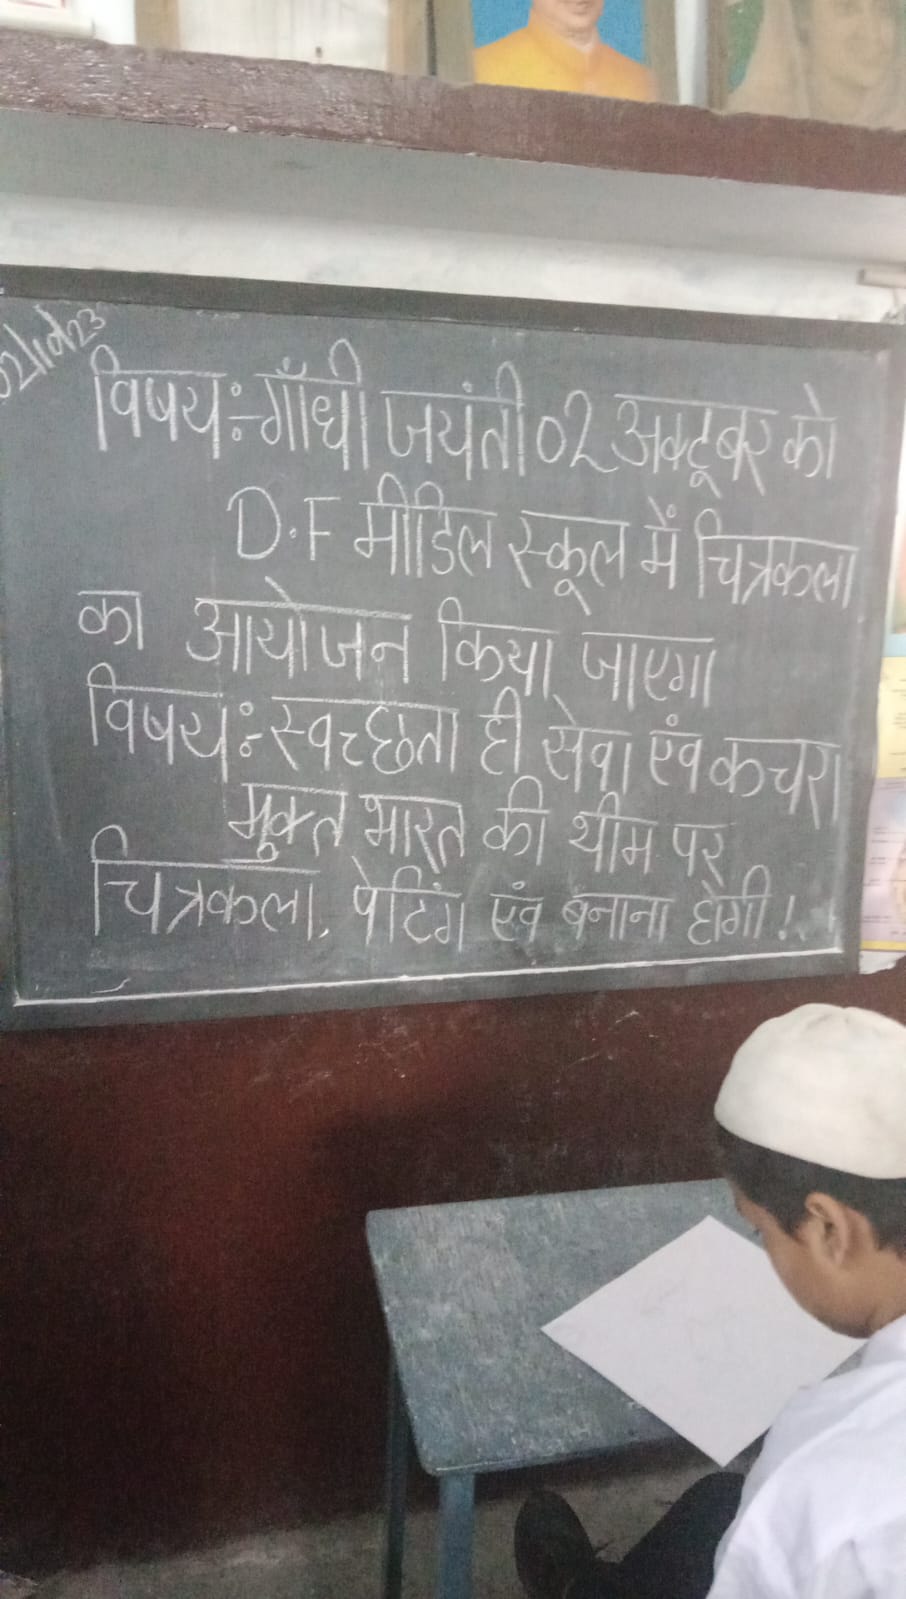 02/10/23
विषयः-गाँधी जयंती 02 अक्टूबर को
D.F मीडिल स्कूल में चित्रकला
का आयोजन किया जाएगा
विषयः-स्वच्छता ही सेवा एंव कचरा
मुक्त भारत की थीम पर
चित्रकला, पेटिंग एंव बनाना होगी!